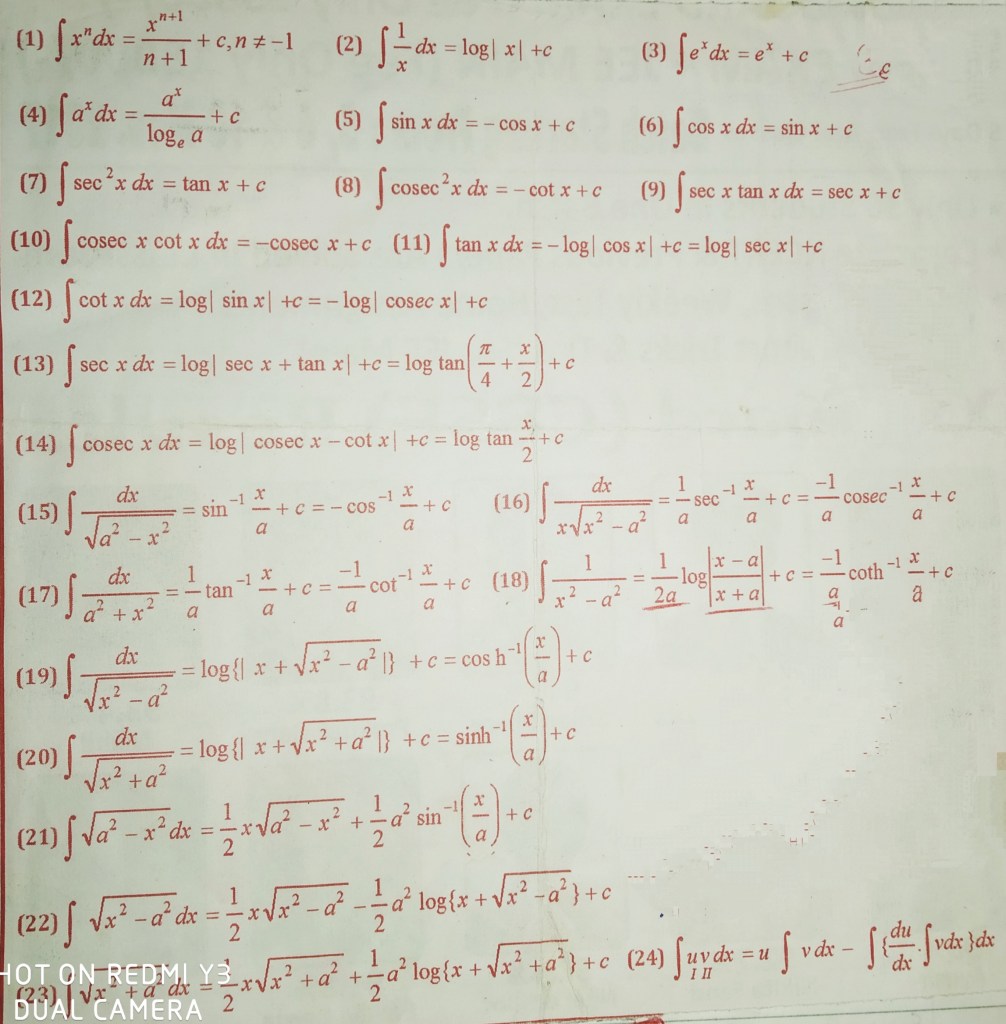 (1) ∫ xⁿ dx = xⁿ⁺¹/(n+1) + c, n ≠ −1 (2) ∫ 1/x dx = log| x| +c (3) ∫ eˣ dx = eˣ + c
(4) ∫ aˣ dx = aˣ/logₑ a + c (5) ∫ sin x dx = − cos x + c (6) ∫ cos x dx = sin x + c
(7) ∫ sec² x dx = tan x + c (8) ∫ cosec² x dx = − cot x + c (9) ∫ sec x tan x dx = sec x + c
(10) ∫ cosec x cot x dx = −cosec x + c (11) ∫ tan x dx = − log| cos x| +c = log| sec x| +c
(12) ∫ cot x dx = log| sin x| +c = − log| cosec x| +c
(13) ∫ sec x dx = log| sec x + tan x| +c = log tan(π/4 + x/2) + c
(14) ∫ cosec x dx = log| cosec x − cot x| +c = log tan x/2 + c
(15) ∫ dx/√(a² − x²) = sin⁻¹ x/a + c = − cos⁻¹ x/a + c (16) ∫ dx/(x√(x² − a²)) = 1/a sec⁻¹ x/a + c = −1/a cosec⁻¹ x/a + c
(17) ∫ dx/(a² + x²) = 1/a tan⁻¹ x/a + c = −1/a cot⁻¹ x/a + c (18) ∫ 1/(x² − a²) = 1/2a log|(x − a)/(x + a)| + c = −1/a coth⁻¹ x/a + c
a
(19) ∫ dx/√(x² − a²) = log{| x + √(x² − a²) |} + c = cos h⁻¹(x/a) + c
(20) ∫ dx/√(x² + a²) = log{| x + √(x² + a²) |} + c = sinh⁻¹(x/a) + c
(21) ∫ √(a² − x²) dx = 1/2 x√(a² − x²) + 1/2 a² sin⁻¹(x/a) + c
(22) ∫ √(x² − a²) dx = 1/2 x√(x² − a²) − 1/2 a² log{x + √(x² − a²)} + c
(23) ∫ √(x² + a²) dx = 1/2 x√(x² + a²) + 1/2 a² log{x + √(x² + a²)} + c (24) ∫ u v dx = u ∫ v dx − ∫ {du/dx . ∫ vdx }dx
I II
HOT ON REDMI Y3
DUAL CAMERA